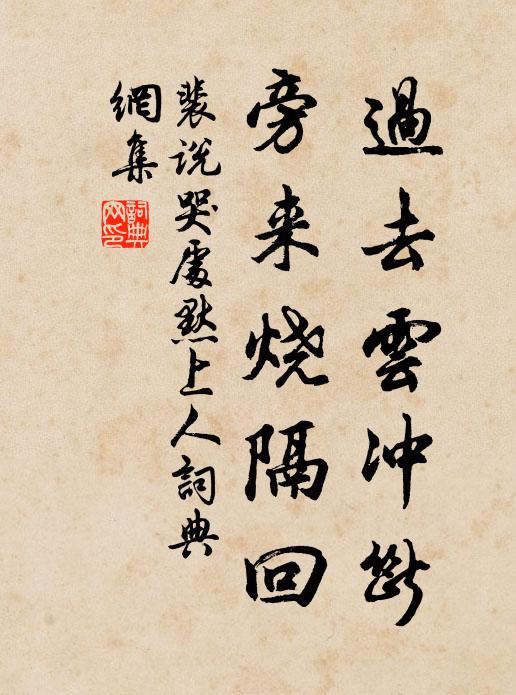 過去雲冲斷
旁来烧隔回
裴说哭處默上人詞典
網集
詞典網印